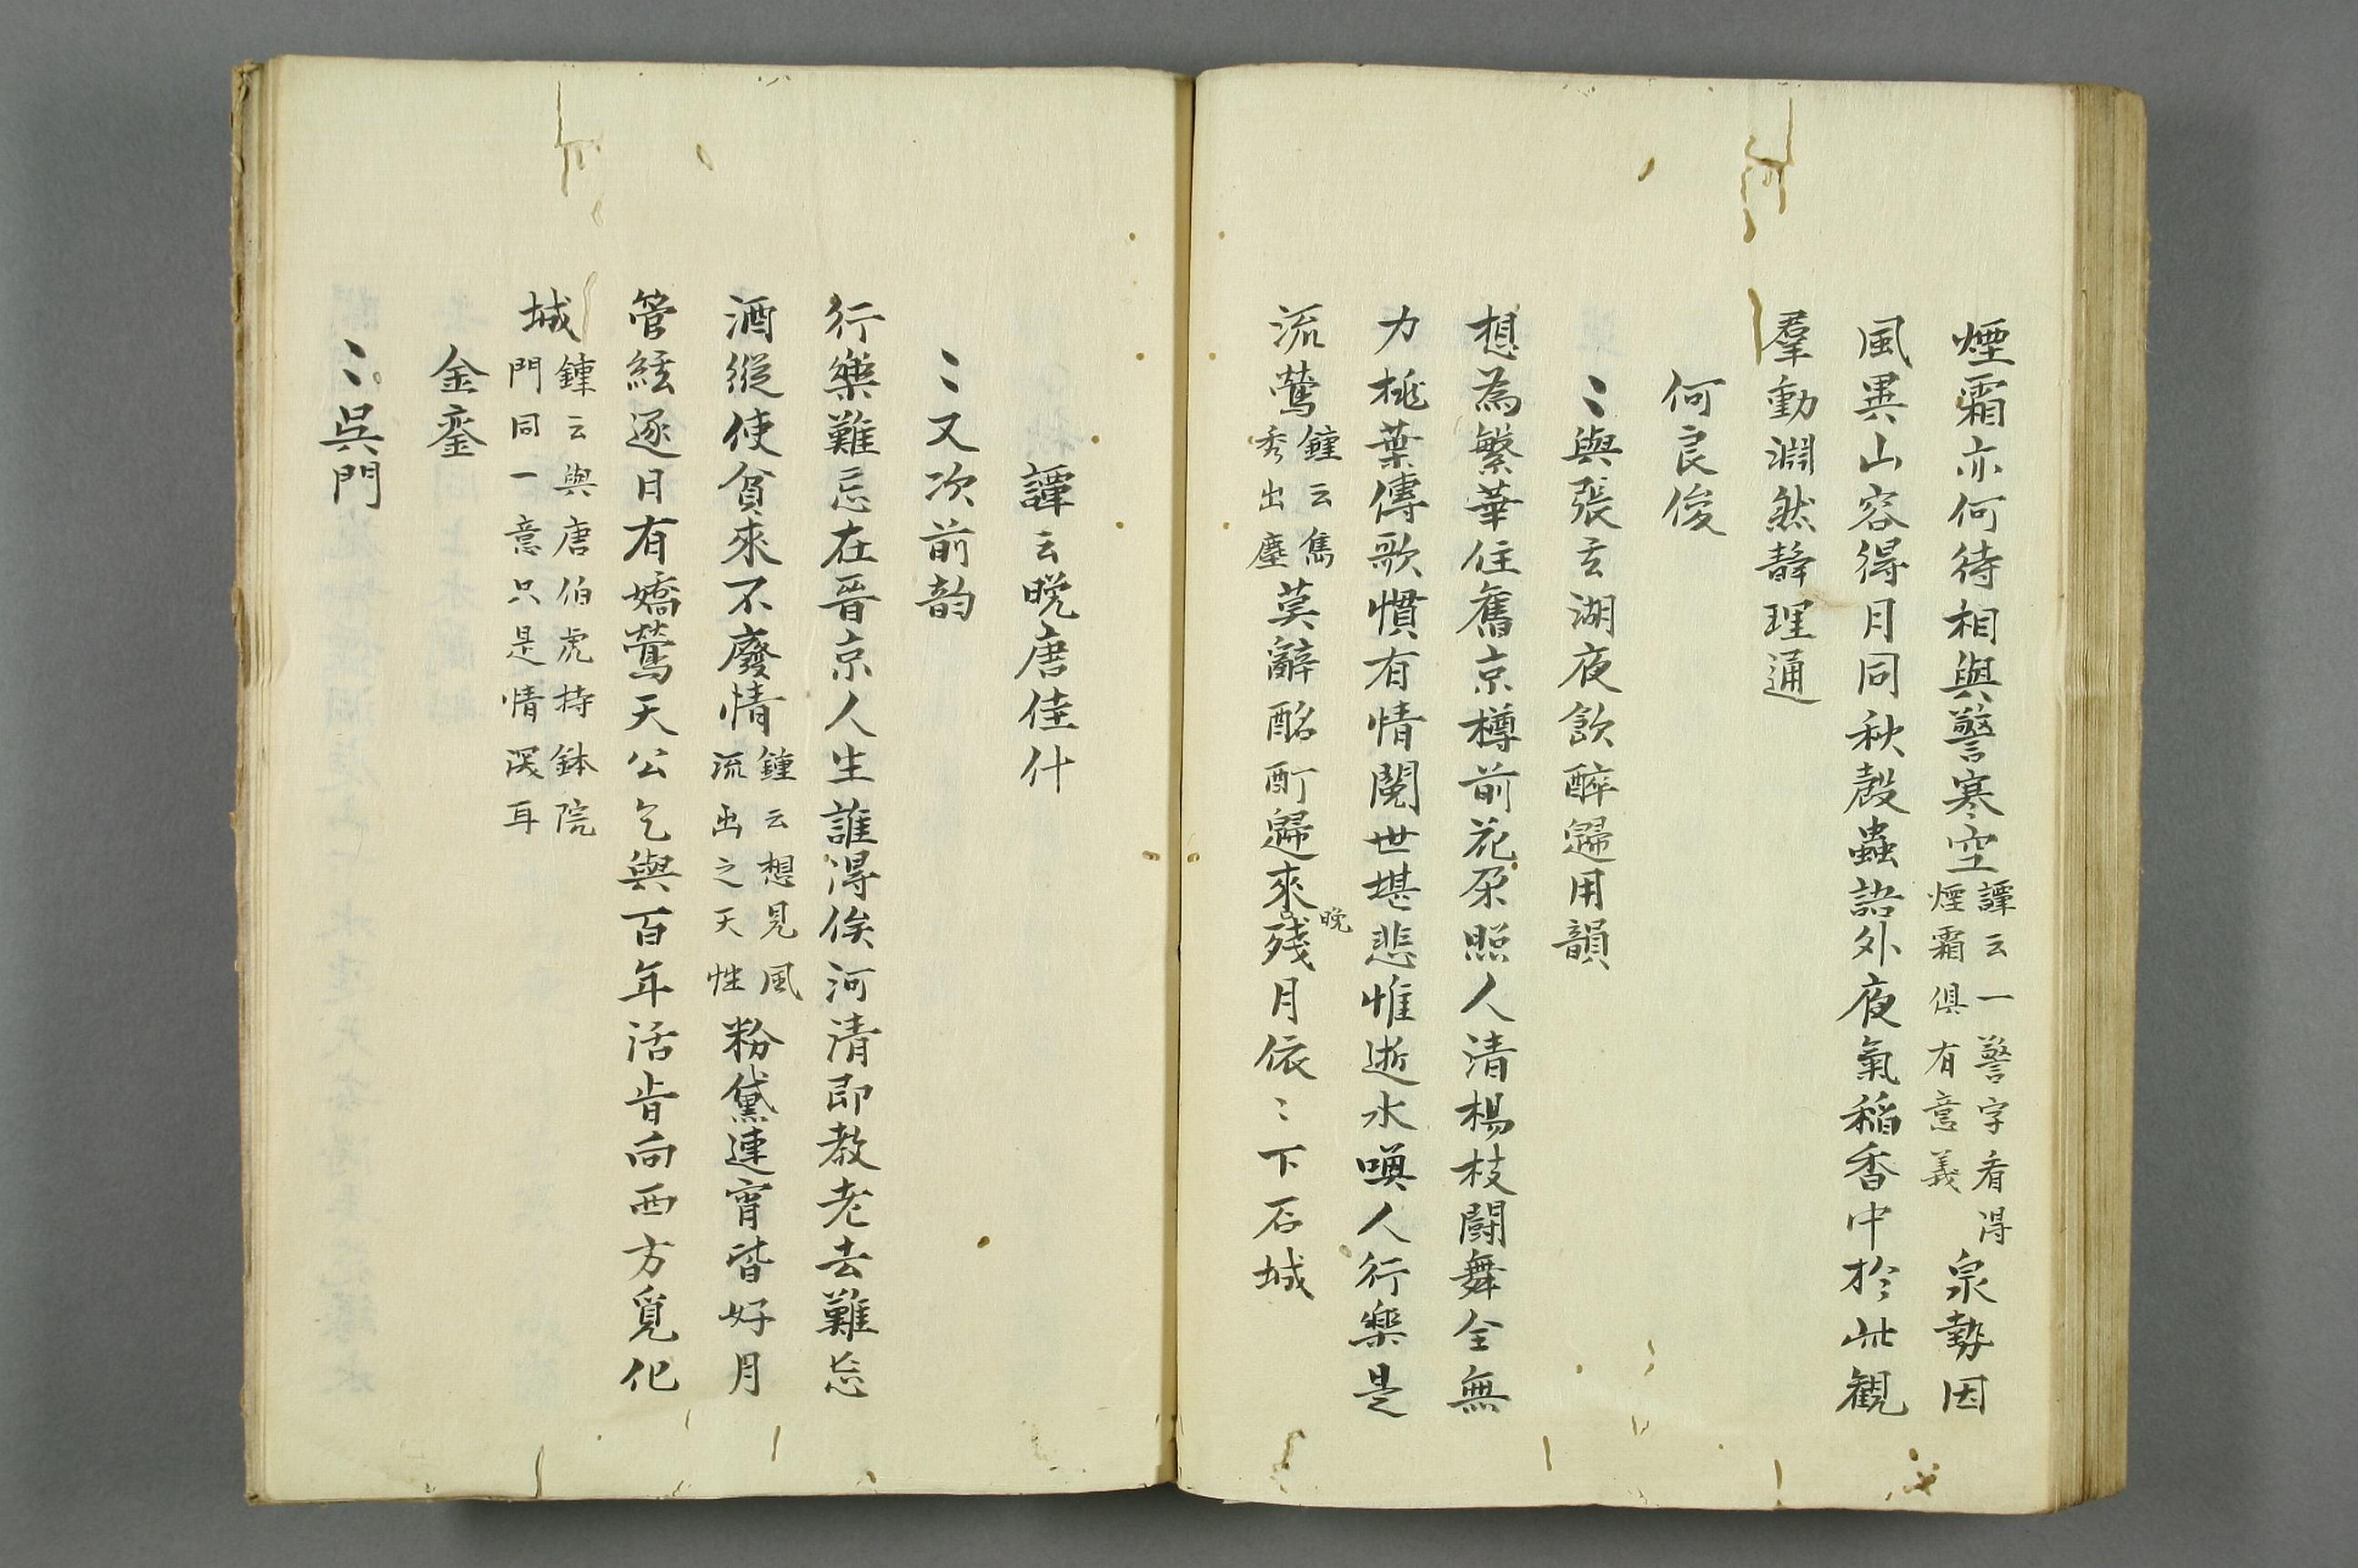 煙霜亦何待相與警寒空譚云一警字看得煙霜俱有意義泉勢因
風異山容得月同秋殼蟲語外夜氣稻香中於此観
羣動淵然靜理通
何良俊
〻與張玄湖夜飲醉歸用韻
想為繁華住舊京樽前花朵照人清楊枝闘舞全無
力桃葉傳歌慣有情閱世堪悲惟逝水喚人行樂是
流鶯鍾云雋秀出塵莫辭酩酊歸來殘晩月依〻下石城
譚云晩唐佳什
〻又次前韵
行樂難忘在晉京人生誰得俟河清即教老去難忘
酒縱使貧來不廢情鍾云想見風流出之天性粉黛連宵皆好月
管絃逐日有嬌鶯天公乞與百年活肯向西方覓化
城鍾云與唐伯虎持鉢院門同一意只是情深耳
金鑾
〻吳門